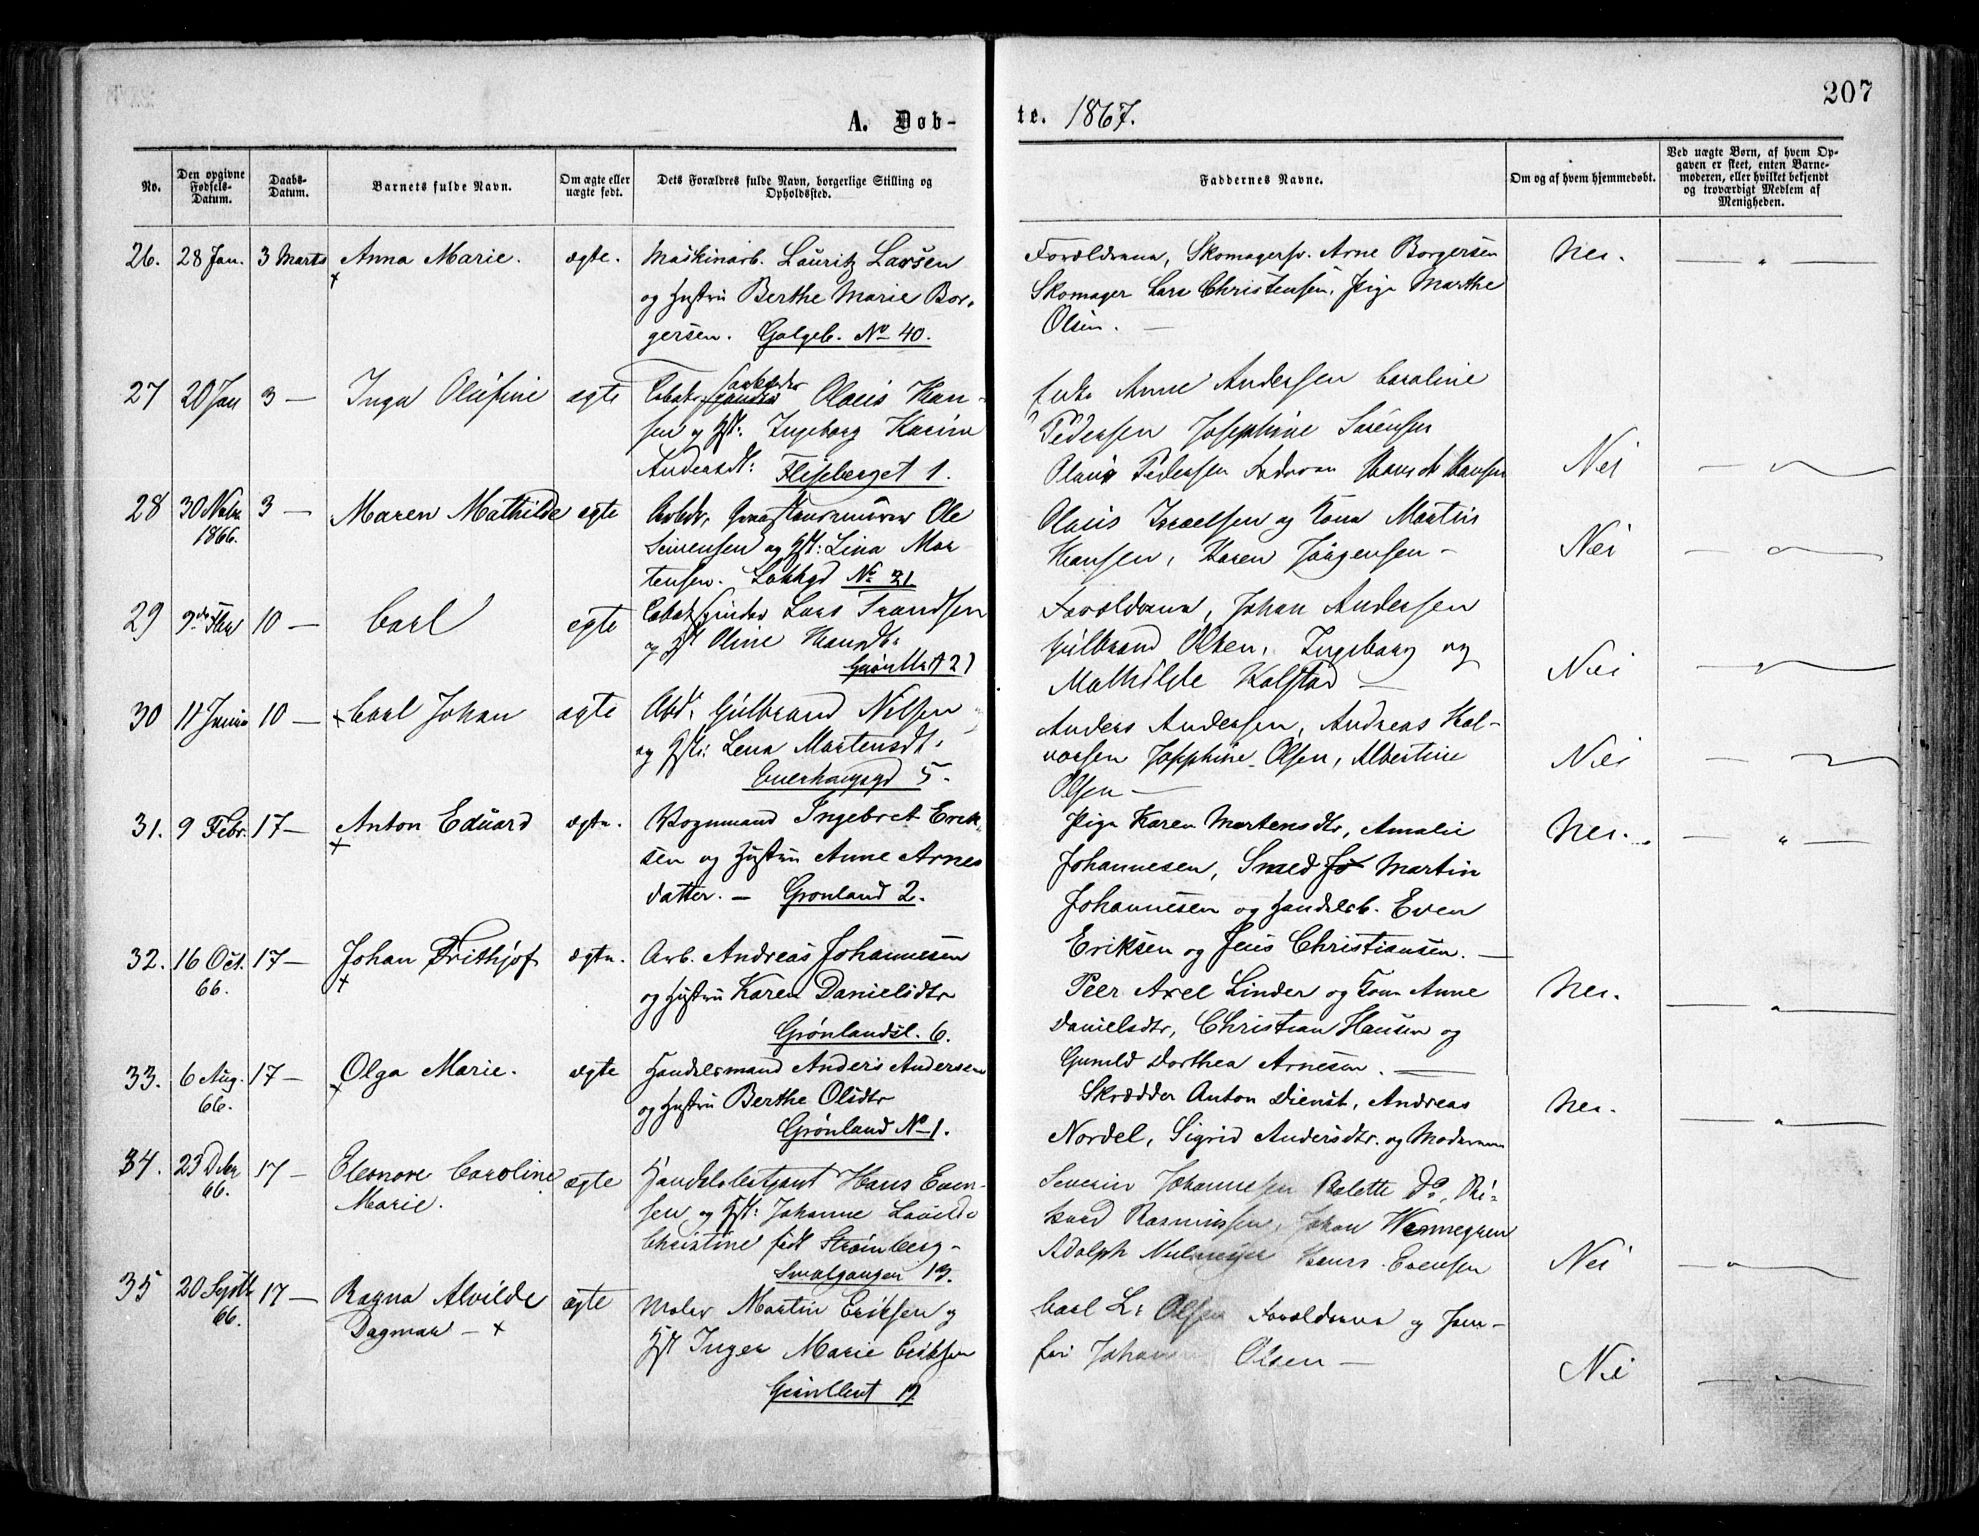 207
A. Døb-
te. 1867.
No.
Den opgivne Fødsels-Datum.
Daabs-Datum.
Barnets fulde Navn.
Om ægte eller uægte født.
Dets Forældres fulde Navn, borgerlige Stilling og Opholdssted.
Faddernes Navne.
Om og af hvem hjemmedøbt.
Ved uægte Børn, af hvem Op-
gaven er skeet, enten Barne-
moderen, eller hvilket bekjendt
og troværdigt Medlem af
Menigheden.
26. 28 Jan. 3 Marts Anna Marie. ægte. Maskinarb. Lauritz Larsen
og Hustru Berthe Marie Bor-
gersen. Galgeb. No 40.
Forældrene, Skomagersv. Arne Borgersen
Skomager Lars Christensen, Pige Marthe
Olsen. —
Nei.
27 20 Jan 3 — Inga Olufine ægte Tobaks Olaus Han-
sen og Hst: Ingeborg Karine
Andersdt: Flisberget 1.
Enke Anne Andersen Caroline
Pedersen Josephine Sørensen
Olaus Pedersen Faderen Hansen
Nei
28 30 Nov 1866. 3 — Maren Mathilde ægte Ole
Simensen og Hst: Lina Mor-
tensen. Lakkgd No 21
Olaus Israelsen og Kone Martin
Hansen, Karen Jørgensen —
Nei
29 10 — Carl ægte Tobakspinder Lars Trandsen
og Hst Oline Hansdt:
Grønlt 21
Forældrene, Johan Andersen
Gulbrand Olsen, Ingeborg og
Mathilde Kalstad —
Nei
30 11 10 — Carl Johan ægte Abd. Gulbrand Nilsen
og Hst: Lena Mortensdt:
Enerhaugsgd 5.
Anders Andersen, Andreas Hal-
vorsen Josephine Olsen, Albertine
Olsen —
Nei
31. 9 Febr. 17 — Anton Eduard ægte. Vognmand Ingebret Erik-
sen og Hustru Anne Arnes
datter. — Grønland 2.
Pige Karen Mortensdtr, Amalie
Johannesen, Smed Jo Martin
Johannesen og Handelsb. Even
Eriksen og Jens Christiansen. —
Nei.
32. 16 Oct. 66. 17 — Johan Frithjof ægte. Arb. Andreas Johannesen
og Hustru Karen Danielsdtr
Grønlandsl. 6.
Peer Axel Linder og Kone Anne
Danielsdtr, Christian Hansen og
Gunild Dorthea Arnesen. —
Nei.
33. 6 Aug. 66. 17 — Olga Marie. ægte Handelsmand Anders Andersen
og Hustru Berthe Olsdtr
Grønland No 1.
Skrædder Anton Dienst, Andreas
Nordel, Sigrid Andersdtr. og Moderen
Nei.
34. 23 Dcbr 66. 17 — Eleonore Caroline
Marie. ægte Handelsbetjent Hans Even-
sen og Hst: Johanne Lovilde
Christine født Strømberg —
Smalgangen 13.
Severin Johannesen Bolette Do, Ri-
kard Rasmussen, Johan Wennegren
Adolph Hans Evensen
Nei
35 20 Septbr 66. 17 — Ragna Alvilde
Dagmar — ægte Maler Martin Eriksen og
Hst Inger Marie Eriksen
Carl L: Olsen Forældrene og Jom-
fru Olsen —
Nei